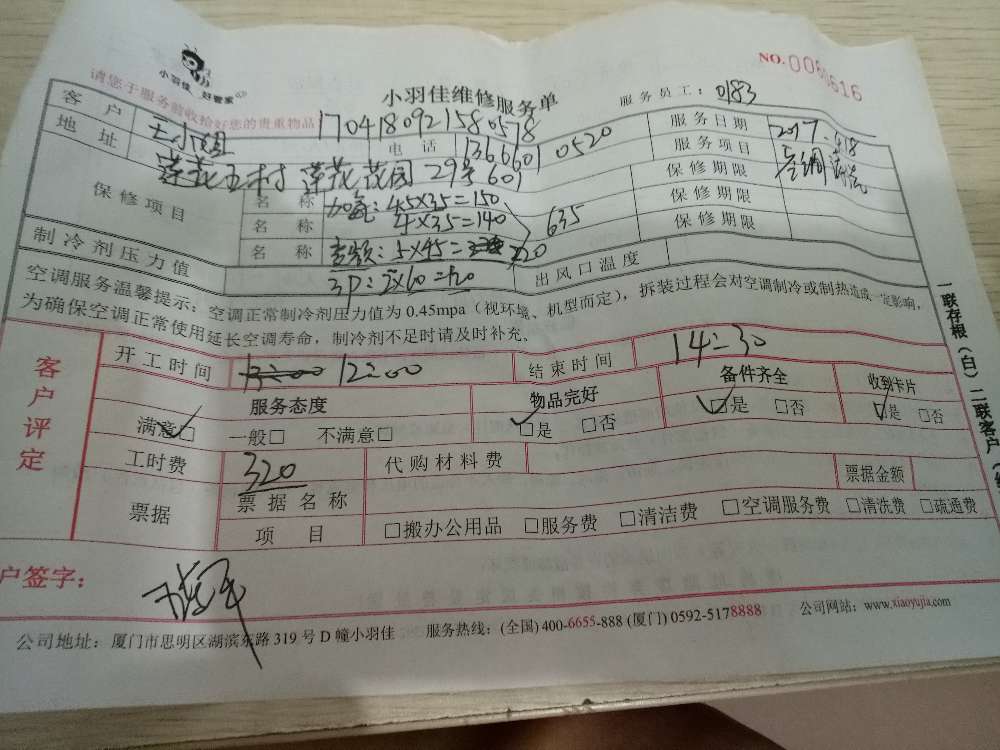 小羽佳 好管家
NO.0060616
请您于服务前收拾好您的贵重物品
小羽佳维修服务单
服务员工：0183
1704180921580578
客户 王小姐 电话 1366601 0520 服务日期 2017
地址 莲花五村 莲花花园 29号601 服务项目 空调
保修项目 名称 4.5×35=150 保修期限
名称 4×35=140 635 保修期限
名称 5×45= 220 保修期限
制冷剂压力值 3P：2×60=120 出风口温度
空调服务温馨提示：空调正常制冷剂压力值为 0.45mpa（视环境、机型而定），拆装过程会对空调制冷或制热造成一定影响，
为确保空调正常使用延长空调寿命，制冷剂不足时请及时补充。
一联存根（白）二联客户
客户评定
开工时间 12:00 结束时间 14:30
服务态度 物品完好 备件齐全 收到卡片
满意□ 一般□ 不满意□ □是 □否 □是 □否 □是 □否
工时费 320 代购材料费
票据 票据名称 票据金额
项目 □搬办公用品 □服务费 □清洁费 □空调服务费 □清洗费 □疏通费
户签字：
公司地址：厦门市思明区湖滨东路 319 号 D 幢小羽佳 服务热线：(全国) 400-6655-888 (厦门) 0592-5178888 公司网站：www.xiaoyujia.com